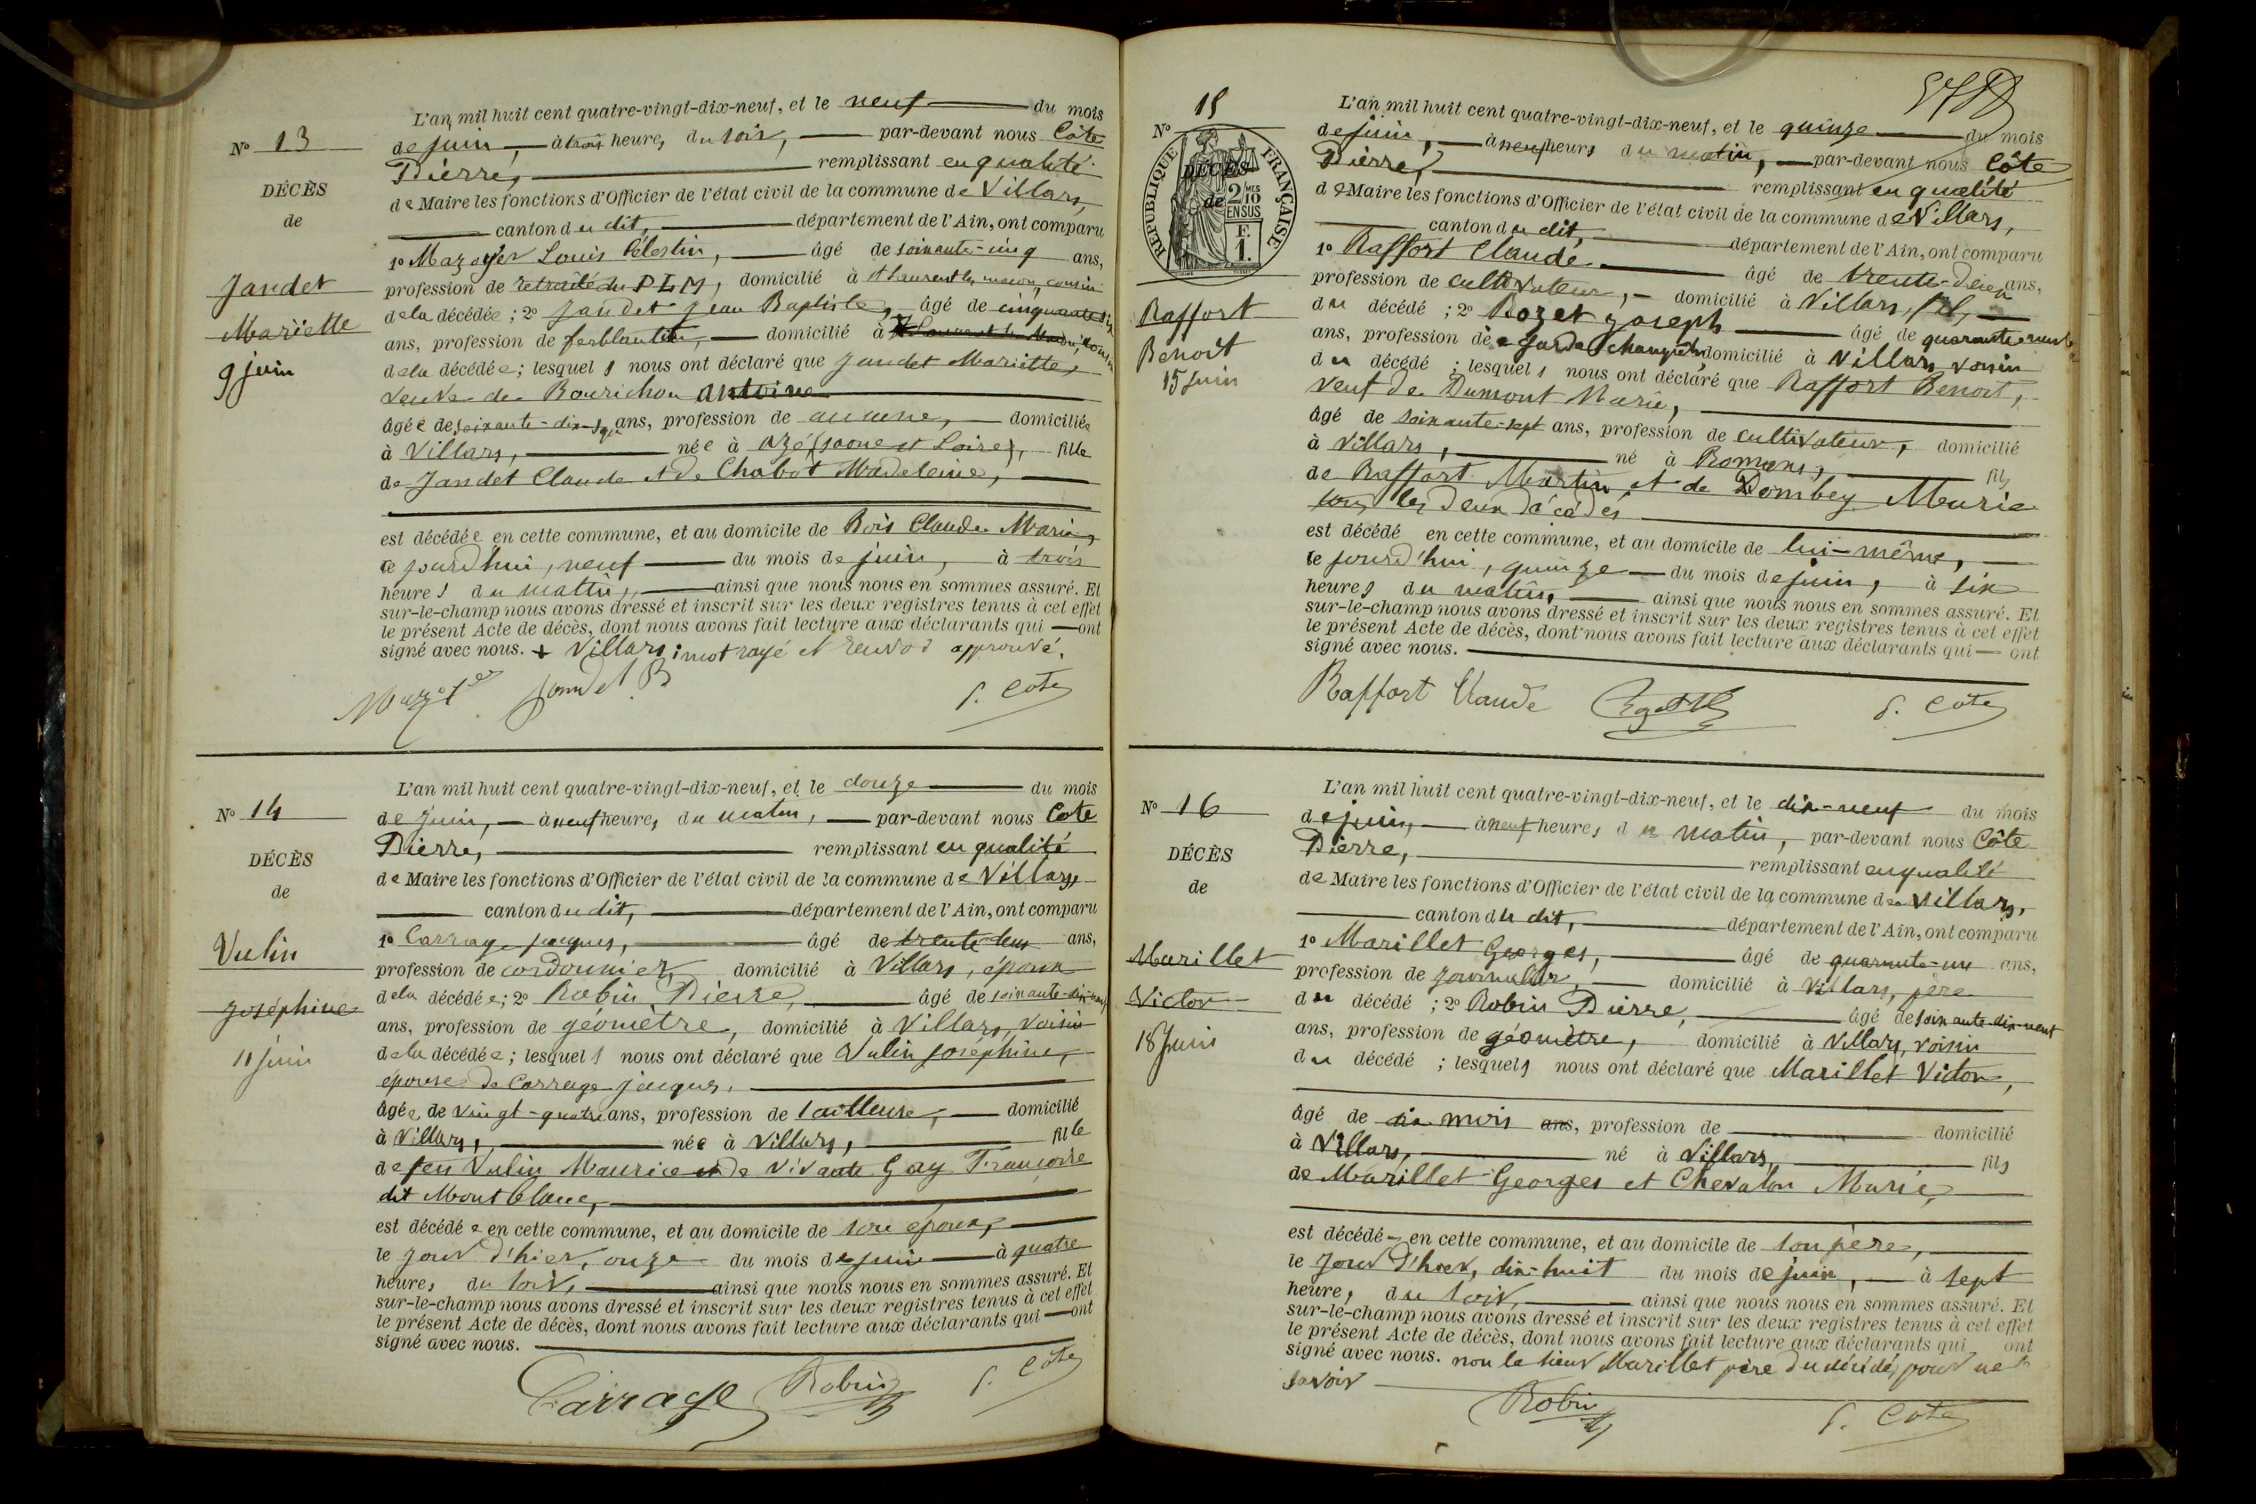 N° 13
DÉCÈS
de
Jandet
Mariette
9 juin
L'an mil huit cent quatre-vingt-dix-neuf, et le neuf du mois
de juin, à trois heures du soir, par-devant nous Côte
Pierre, remplissant en qualité
de Maire les fonctions d'Officier de l'état civil de la commune de Villars,
canton du dit, département de l'Ain, ont comparu
1° Mazoyer Louis Célestin, âgé de soixante-cinq ans,
profession de retraité du PLM, domicilié à St Laurent les macon, cousin
de la décédée; 2° Jandet Jean Baptiste, âgé de cinquante
ans, profession de ferblantier, domicilié à St Laurent les Macon, cousin
de la décédée; lesquels nous ont déclaré que Jandet Mariette,
veuve de Bourichon Antoine
âgée de soixante-dix- ans, profession de aucune, domiciliée
à Villars, née à Azé (Saone et Loire), fille
de Jandet Claude et de Chabot Madeleine,
est décédée en cette commune, et au domicile de Bois Claude Marie,
ce jourd'hui, neuf du mois de juin, à trois
heures du matin, ainsi que nous nous en sommes assuré. Et
sur-le-champ nous avons dressé et inscrit sur les deux registres tenus à cet effet
le présent Acte de décès, dont nous avons fait lecture aux déclarants qui ont
signé avec nous. + Villars; mot rayé et renvoi approuvé.
Mazoyer Jandet B P. Côte
N° 14
DÉCÈS
de
Vulin
Joséphine
11 juin
L'an mil huit cent quatre-vingt-dix-neuf, et le douze du mois
de juin, à neuf heures du matin, par-devant nous Cote
Pierre, remplissant en qualité
de Maire les fonctions d'Officier de l'état civil de la commune de Villars,
canton du dit, département de l'Ain, ont comparu
1° Carrage Jacques, âgé de trente deux ans,
profession de cordonnier, domicilié à Villars, époux
de la décédée; 2° Robin Pierre, âgé de soixante-dix-neuf
ans, profession de géomètre, domicilié à Villars, voisin
de la décédée; lesquels nous ont déclaré que Vulin Joséphine,
épouse de Carrage Jacques,
âgée de vingt-quatre ans, profession de tailleuse, domicilié
à Villars, née à Villars, fille
de feu Vulin Maurice et de vivante Gay Françoise
dit Montblanc,
est décédée en cette commune, et au domicile de son époux,
le jour d'hier, onze du mois de juin à quatre
heures du soir, ainsi que nous nous en sommes assuré. Et
sur-le-champ nous avons dressé et inscrit sur les deux registres tenus à cet effet
le présent Acte de décès, dont nous avons fait lecture aux déclarants qui ont
signé avec nous.
Carrage Robin P. Côte
N° 15
RÉPUBLIQUE FRANÇAISE
2/10 MES EN SUS
F. 1.
DÉCÈS
de
Raffort
Benoit
15 Juin
L'an mil huit cent quatre-vingt-dix-neuf, et le quinze du mois
de juin, à neuf heurs du matin, par-devant nous Côte
Pierre, remplissant en qualité
de Maire les fonctions d'Officier de l'état civil de la commune de Villars,
canton du dit, département de l'Ain, ont comparu
1° Raffort Claude âgé de trente-deux ans,
profession de cultivateur, domicilié à Villars, fils,
du décédé; 2° Rozet Joseph âgé de quarante-neuf
ans, profession de garde champêtre domicilié à Villars, voisin
du décédé; lesquels nous ont déclaré que Raffort Benoit,
veuf de Dumont Marie,
âgé de soixante-sept ans, profession de cultivateur, domicilié
à Villars, né à Romans, fils
de Raffort Martin et de Dombey Marie
tous les deux décédés
est décédé en cette commune, et au domicile de lui-même,
le jourd'hui, quinze du mois de juin, à six
heures du matin, ainsi que nous nous en sommes assuré. Et
sur-le-champ nous avons dressé et inscrit sur les deux registres tenus à cet effet
le présent Acte de décès, dont nous avons fait lecture aux déclarants qui ont
signé avec nous.
Raffort Claude P. Côte
N° 16
DÉCÈS
de
Marillet
Victor
18 Juin
L'an mil huit cent quatre-vingt-dix-neuf, et le dix-neuf du mois
de juin, à neuf heures du matin, par-devant nous Côte
Pierre, remplissant en qualité
de Maire les fonctions d'Officier de l'état civil de la commune de Villars,
canton du dit, département de l'Ain, ont comparu
1° Marillet Georges, âgé de quarante-un ans,
profession de journalier, domicilié à Villars, père
du décédé; 2° Robin Pierre, âgé de soixante-dix-neuf
ans, profession de géomètre, domicilié à Villars, voisin
du décédé; lesquels nous ont déclaré que Marillet Victor,
âgé de six mois ans, profession de domicilié
à Villars, né à Villars, fils
de Marillet Georges et Chevalon Marie,
est décédé en cette commune, et au domicile de son père,
le jour d'hier, dix-huit du mois de juin, à sept
heures du soir, ainsi que nous nous en sommes assuré. Et
sur-le-champ nous avons dressé et inscrit sur les deux registres tenus à cet effet
le présent Acte de décès, dont nous avons fait lecture aux déclarants qui ont
signé avec nous. non le sieur Marillet père du décédé, pour ne
savoir
Robin P. Cote